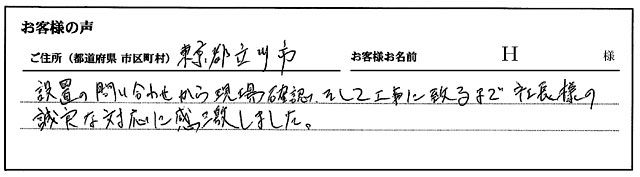 お客様の声
ご住所（都道府県 市区町村） 東京都立川市 お客様お名前 H 様
設置の問い合わせから現場確認、そして工事に致るまで 社長様の
誠実な対応に感激しました。